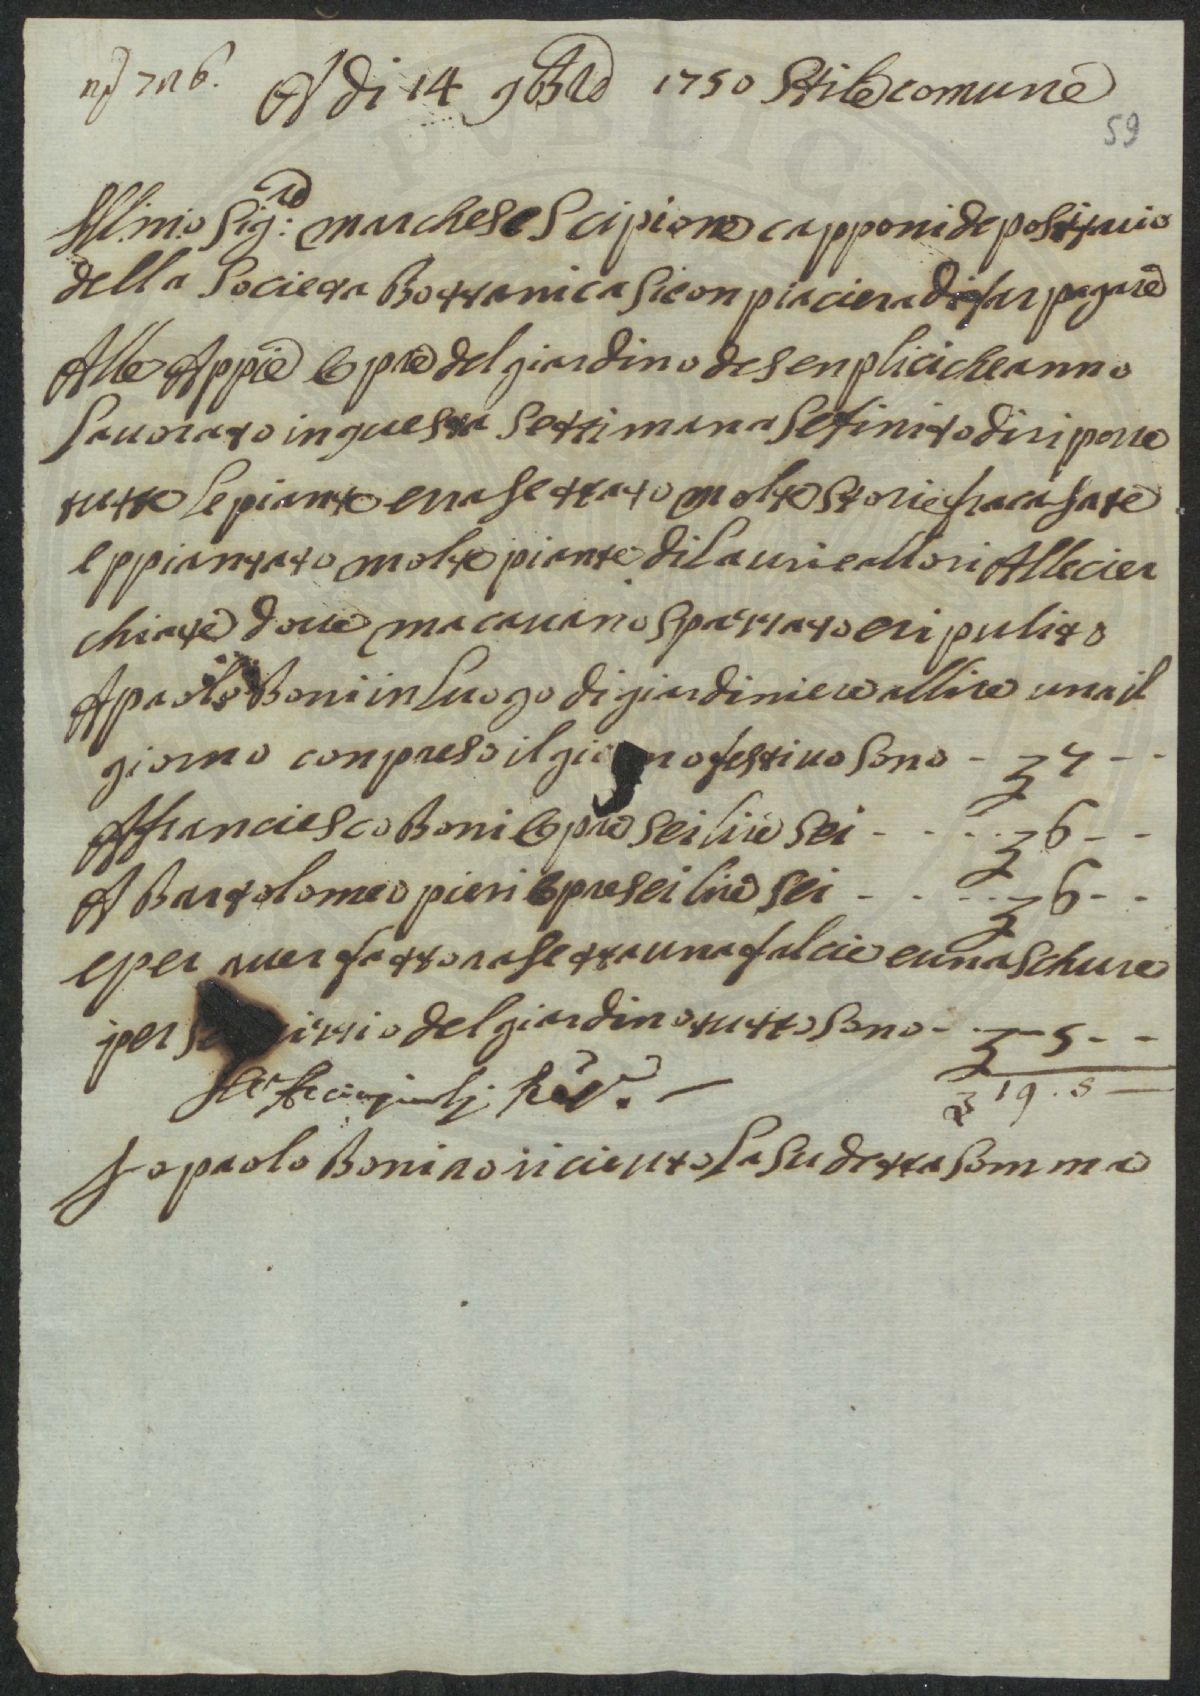 A di 14 9bre 1750 Stile comune
59
Ill.mo Sig.re marchese Scipione capponi depositario
della Societa Bottanica si conpiaciera di far pagare
Alle Appie opre del giardino de senplici che anno
lavorato in questa settimana se finito di riporre
tutte le piante e rasettato molte storie fracasate
e ppiantato molte piante di Lauri e allori Alle cier
chiate dove macavano spazzato e ripulito
A paolo Boni in luogo di giardiniere a llire una il
giorno conpreso il giorno festivo sono - £ 7 - -
A franciesco Boni opre sei lire sei - - - - £ 6 - -
A Bartolomeo pieri opre sei lire sei - - - - £ 6 - -
e per aver fatto rasettra una falcie e una schure
per servizio del giardino tutto sono - - £ - 5 - -
£ 19 . 5 —
Io paolo Boni o riciento la sudetta somma